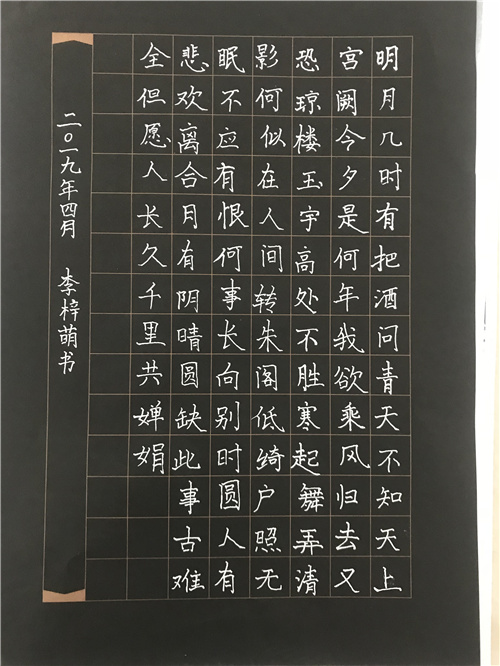 明月几时有把酒问青天不知天上
宫阙今夕是何年我欲乘风归去又
恐琼楼玉宇高处不胜寒起舞弄清
影何似在人间转朱阁低绮户照无
眠不应有恨何事长向别时圆人有
悲欢离合月有阴晴圆缺此事古难
全但愿人长久千里共婵娟
二〇一九年四月 李梓萌书